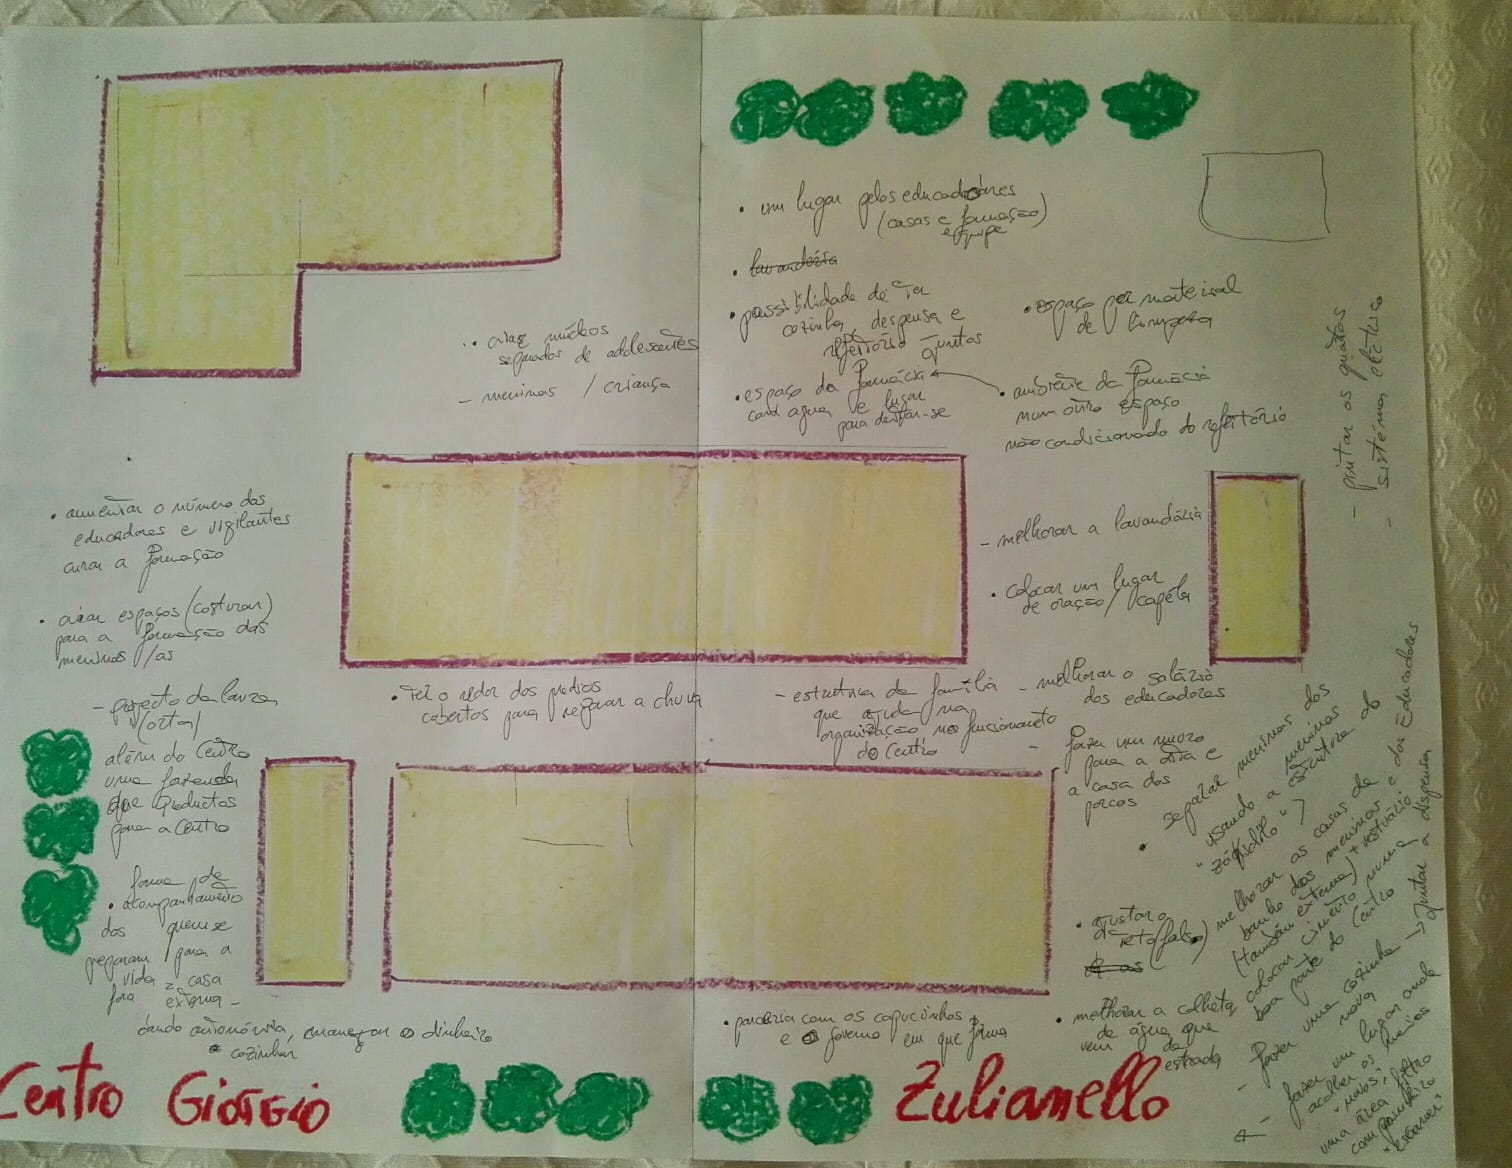 • um lugar pelos educadores
(casas e formação)
equipe
• lavandéria
• possibilidade de ter
cozinha, despensa e
refeitório juntos
• espaço per material
de limpeza
• espaço da farmácia
com agua e lugar
para deitar-se
• ambiente da farmácia
num outro espaço
não condicionado do refeitório
- pintar os quartos
- sistéma elétrico
• criar núcleos
separados de adolesantes
- meninas / criança
• aumentar o número das
educadores e vigilantes
curar a formação
• criar espaços (costurar)
para a formação das
meninas/as
- projecto da lavra
(orta)
além do Centro
uma fazenda
que productos
para a Centro
forma de
• acompanhamento
dos que se
preparam para a
vida
fora
casa
externa -
dando autonómia, manegar o dinheiro
cozinhar
• fez o redor dos predios
cobertos para reparar a chuva
- estrutura de família
que ajuda na
organização no funcionamento
do Centro
- melhorar a lavandária
• colocar um lugar
de oração / capéla
- melhorar o salário
dos educadores
- fazer um muro
para a
a casa dos
porcos
• separar meninas dos
meninos
usando a estrutura do
• ajustar o
teto (falso)
melhorar as casas de
banho dos meninos e dos Educadores
(também externa) + vestuário
colocar cimento numa
boa parte do Centro
- fazer uma cozinha → juntar a dispensa
nova
- fazer um lugar onde
acolher os meninos
"novos",
uma área, filtro
com
• melhorar a colheita
de água que
vem da
estrada
• parceria com os capucinhos
e o governo em que forma
Centro Giorgio Zulianello